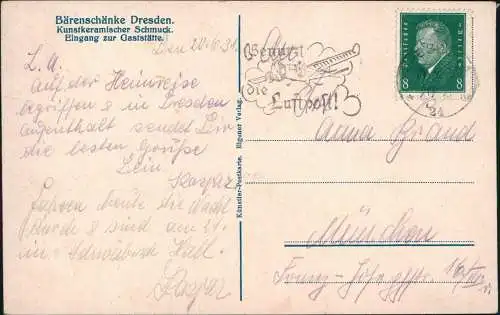 Bärenschänke Dresden.
Kunstkeramischer Schmuck.
Eingang zur Gaststätte.
20.6.31.
L. A.
Auf der Heimreise
begriffen & in Dresden
Aufenthalt sendet Dir
die besten Grüße
Dein
Kaspar
Fahren heute die Nacht
durch & sind am 21.
in Schwäbisch Hall.
Kaspar
Künstler-Postkarte. Eigener Verlag.
Benutzt
die
Luftpost!
8 8
24
Anna Brand
München